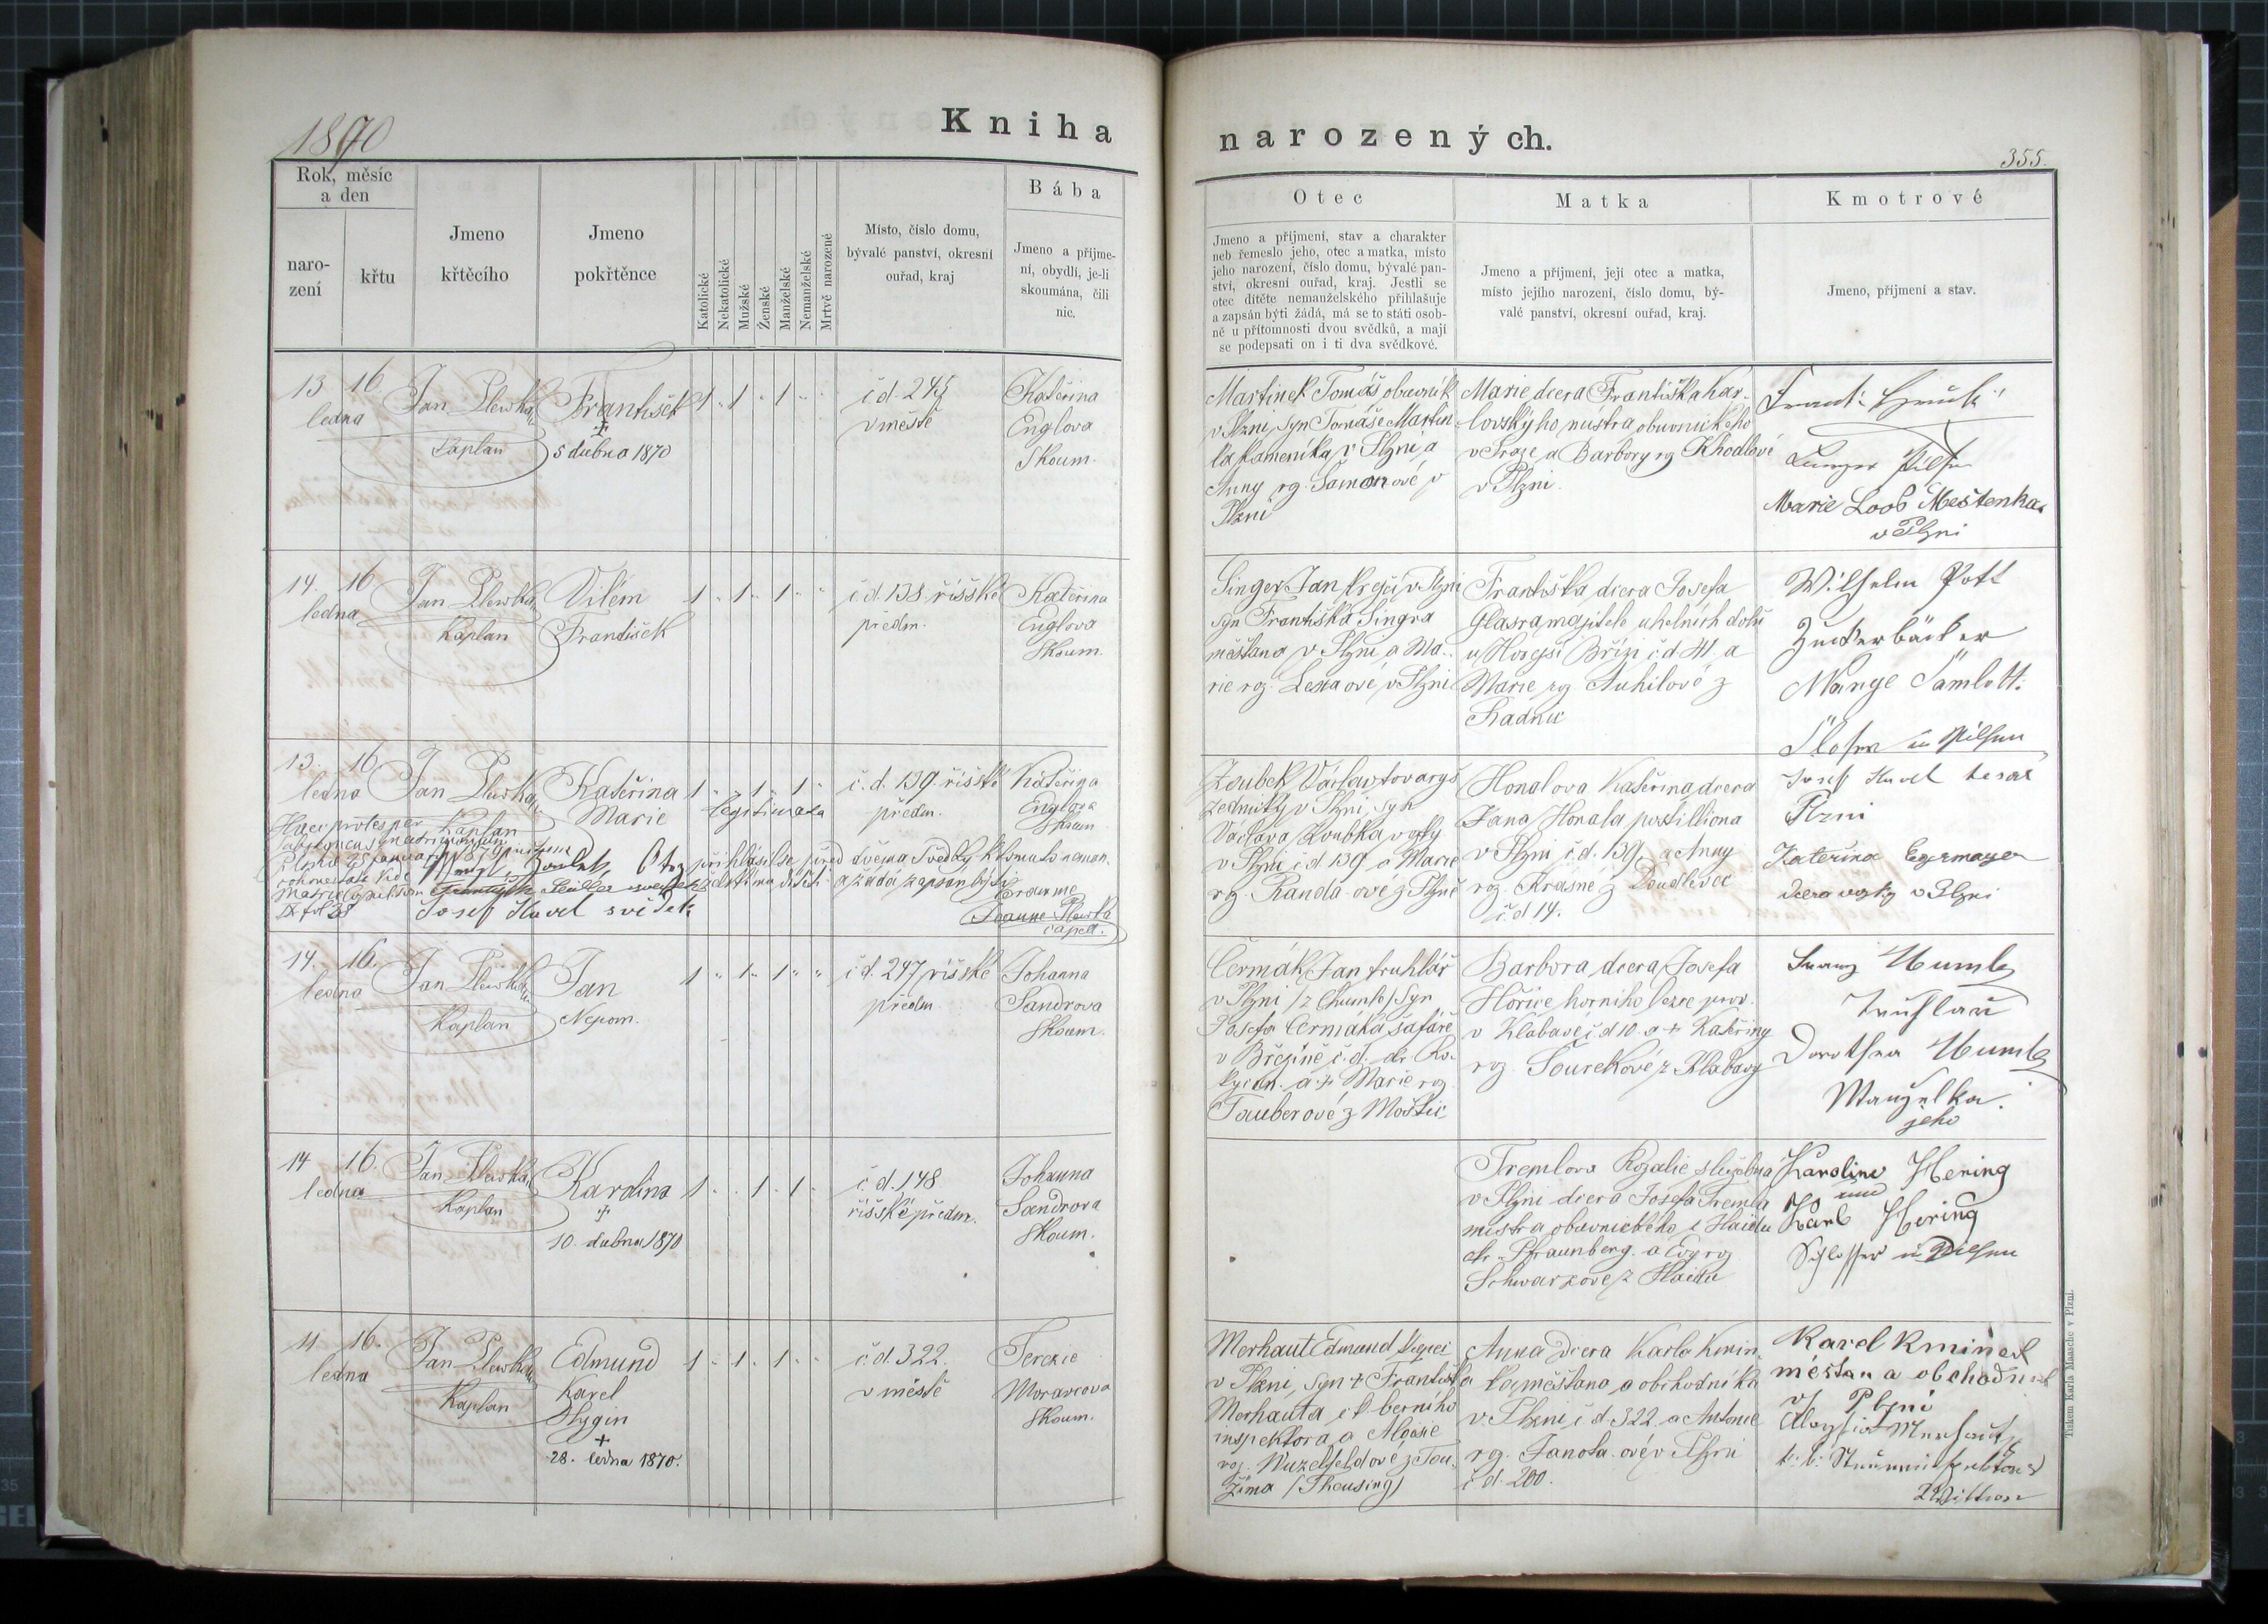 1870
Kniha
narozených.
355.
Rok, měsíc
a den
naro-
zení
křtu
Jmeno
křtěcího
Jmeno
pokřtěnce
Katolické
Nekatolické
Mužské
Ženské
Manželské
Nemanželské
Mrtvě narozené
Místo, číslo domu,
bývalé panství, okresní
ouřad, kraj
Bába
Jmeno a příjme-
ní, obydlí, je-li
skoumána, čili
nic.
Otec
Jmeno a příjmení, stav a charakter
neb řemeslo jeho, otec a matka, místo
jeho narození, číslo domu, bývalé pan-
ství, okresní ouřad, kraj. Jestli se
otec dítěte nemanželského přihlašuje
a zapsán býti žádá, má se to státi osob-
ně u přítomnosti dvou svědků, a mají
se podepsati on i ti dva svědkové.
Matka
Jmeno a příjmení, její otec a matka,
místo jejího narození, číslo domu, bý-
valé panství, okresní ouřad, kraj.
Kmotrové
Jmeno, příjmení a stav.
13 16
ledna
Jan Plewka
Kaplan
František
+
5 dubna 1870
1 " 1 " 1 " "
č d. 245
v městě
Kateřina
Englova
Skoum.
Martinek Tomáš obuvník
v Plzni, syn Tomáše Martin
ka kameníka v Plzni a
Anny rg. Šamanové v
Plzni
Marie dcera Františka Kar-
lovskýho mistra obuvnického
v Praze a Barbory rg Khodlové
v Plzni.
Marie Loob Meštenka
v Plzni
14. 16
ledna
Jan Plewka
Kaplan
Vilém
František
1 " 1 " 1 " "
č. d. 138. říšské
předm.
Kateřina
Englova
Skoum.
Singer Jan krejčí v Plzni
syn Františka Singra
měšťana v Plzni a Ma-
rie roz. v Plzni
Františka dcera Josefa
Glasra majitele uhelních dolů
u Hořejší Břízi č d 41 a
Marie rg z
Radnic
Wilhelm Pott
Zuckerbäcker
in Pilsen
13. 16
ledna
Jan Plewka
Kaplan
Kateřina
Marie
1 " " 1 " 1 "
legitimata
č. d. 139. říšské
předm.
Kateřina
Englova
Skoum
Otec přihlásil se před dvěma svědky k tomuto neman.
želskému dítěti a žádá zapsán býti
coram me
Joanne Plewka
capell.
Josef Havel svědek
Zoubek Václav tovaryš
zednický v Plzni, syn
Václava Zoubka
v Plzni č d 139 a Marie
rg. Randa-ové z Plzně
Honalova Kateřina dcera
Jana Honala postilliona
v Plzni č. d. 139. a Anny
rg. Krásné z Doudlevec
č. d 14.
Josef Havel tesař
Plzni
Kateřina Egermayer
v Plzni
14. 16.
ledna
Jan Plewka
Kaplan
Jan
Nepom.
1 " 1 " 1 " "
č d. 247 říšské
předm.
Johanna
Sandrova
Skoum.
Čermák Jan truhlář
v Plzni /z Chumle/ syn
Josefa Čermáka šafáře
v Březině č. d. okr. Ro-
kycan. a + Marie rg.
Tauberové z Moštic
Barbora dcera Josefa
Hořice horního
v Klabavě č. d 10. a + Kateřiny
rg. Šourekové z Klabavy
Franz Huml
truhlař
Dorothea Huml
Manželka
jeho
14 16.
ledna
Jan Plewka
Kaplan
Karolina
+
10. dubna 1870
1 " " 1 " 1 "
č d. 148
říšské předm.
Johanna
Sandrova
Skoum.
Tremlova Rozalie služebná
v Plzni dcera Josefa Tremla
mistra obuvnického z Haidu
okr. Pfraunberg. a Evy rg
Schwarzové z Haidu
Karoline Hering
und
Karl Hering
Schlosser in Pilsen
11 16.
ledna
Jan Plewka
Kaplan
Edmund
Karel
Hygin
+
28. ledna 1870.
1 " 1 " 1 " "
č. d. 322.
v městě
Terezie
Moravcova
Skoum.
Merhaut Edmund
v Plzni, syn + Františka
Merhauta c k berního
inspektora a Aloisie
roz. Wuzelfeldové z Tou-
žima (Theusing)
Anna dcera Karla Kmin-
ka měšťana a obchodníka
v Plzni č d. 322. a Antonie
rg. Janota-ové v Plzni
č d. 200.
Karel Kminek
měštan a obchodnik
v Plzni
Aloysia Merhaut
Tiskem Karla Maasche v Plzni.